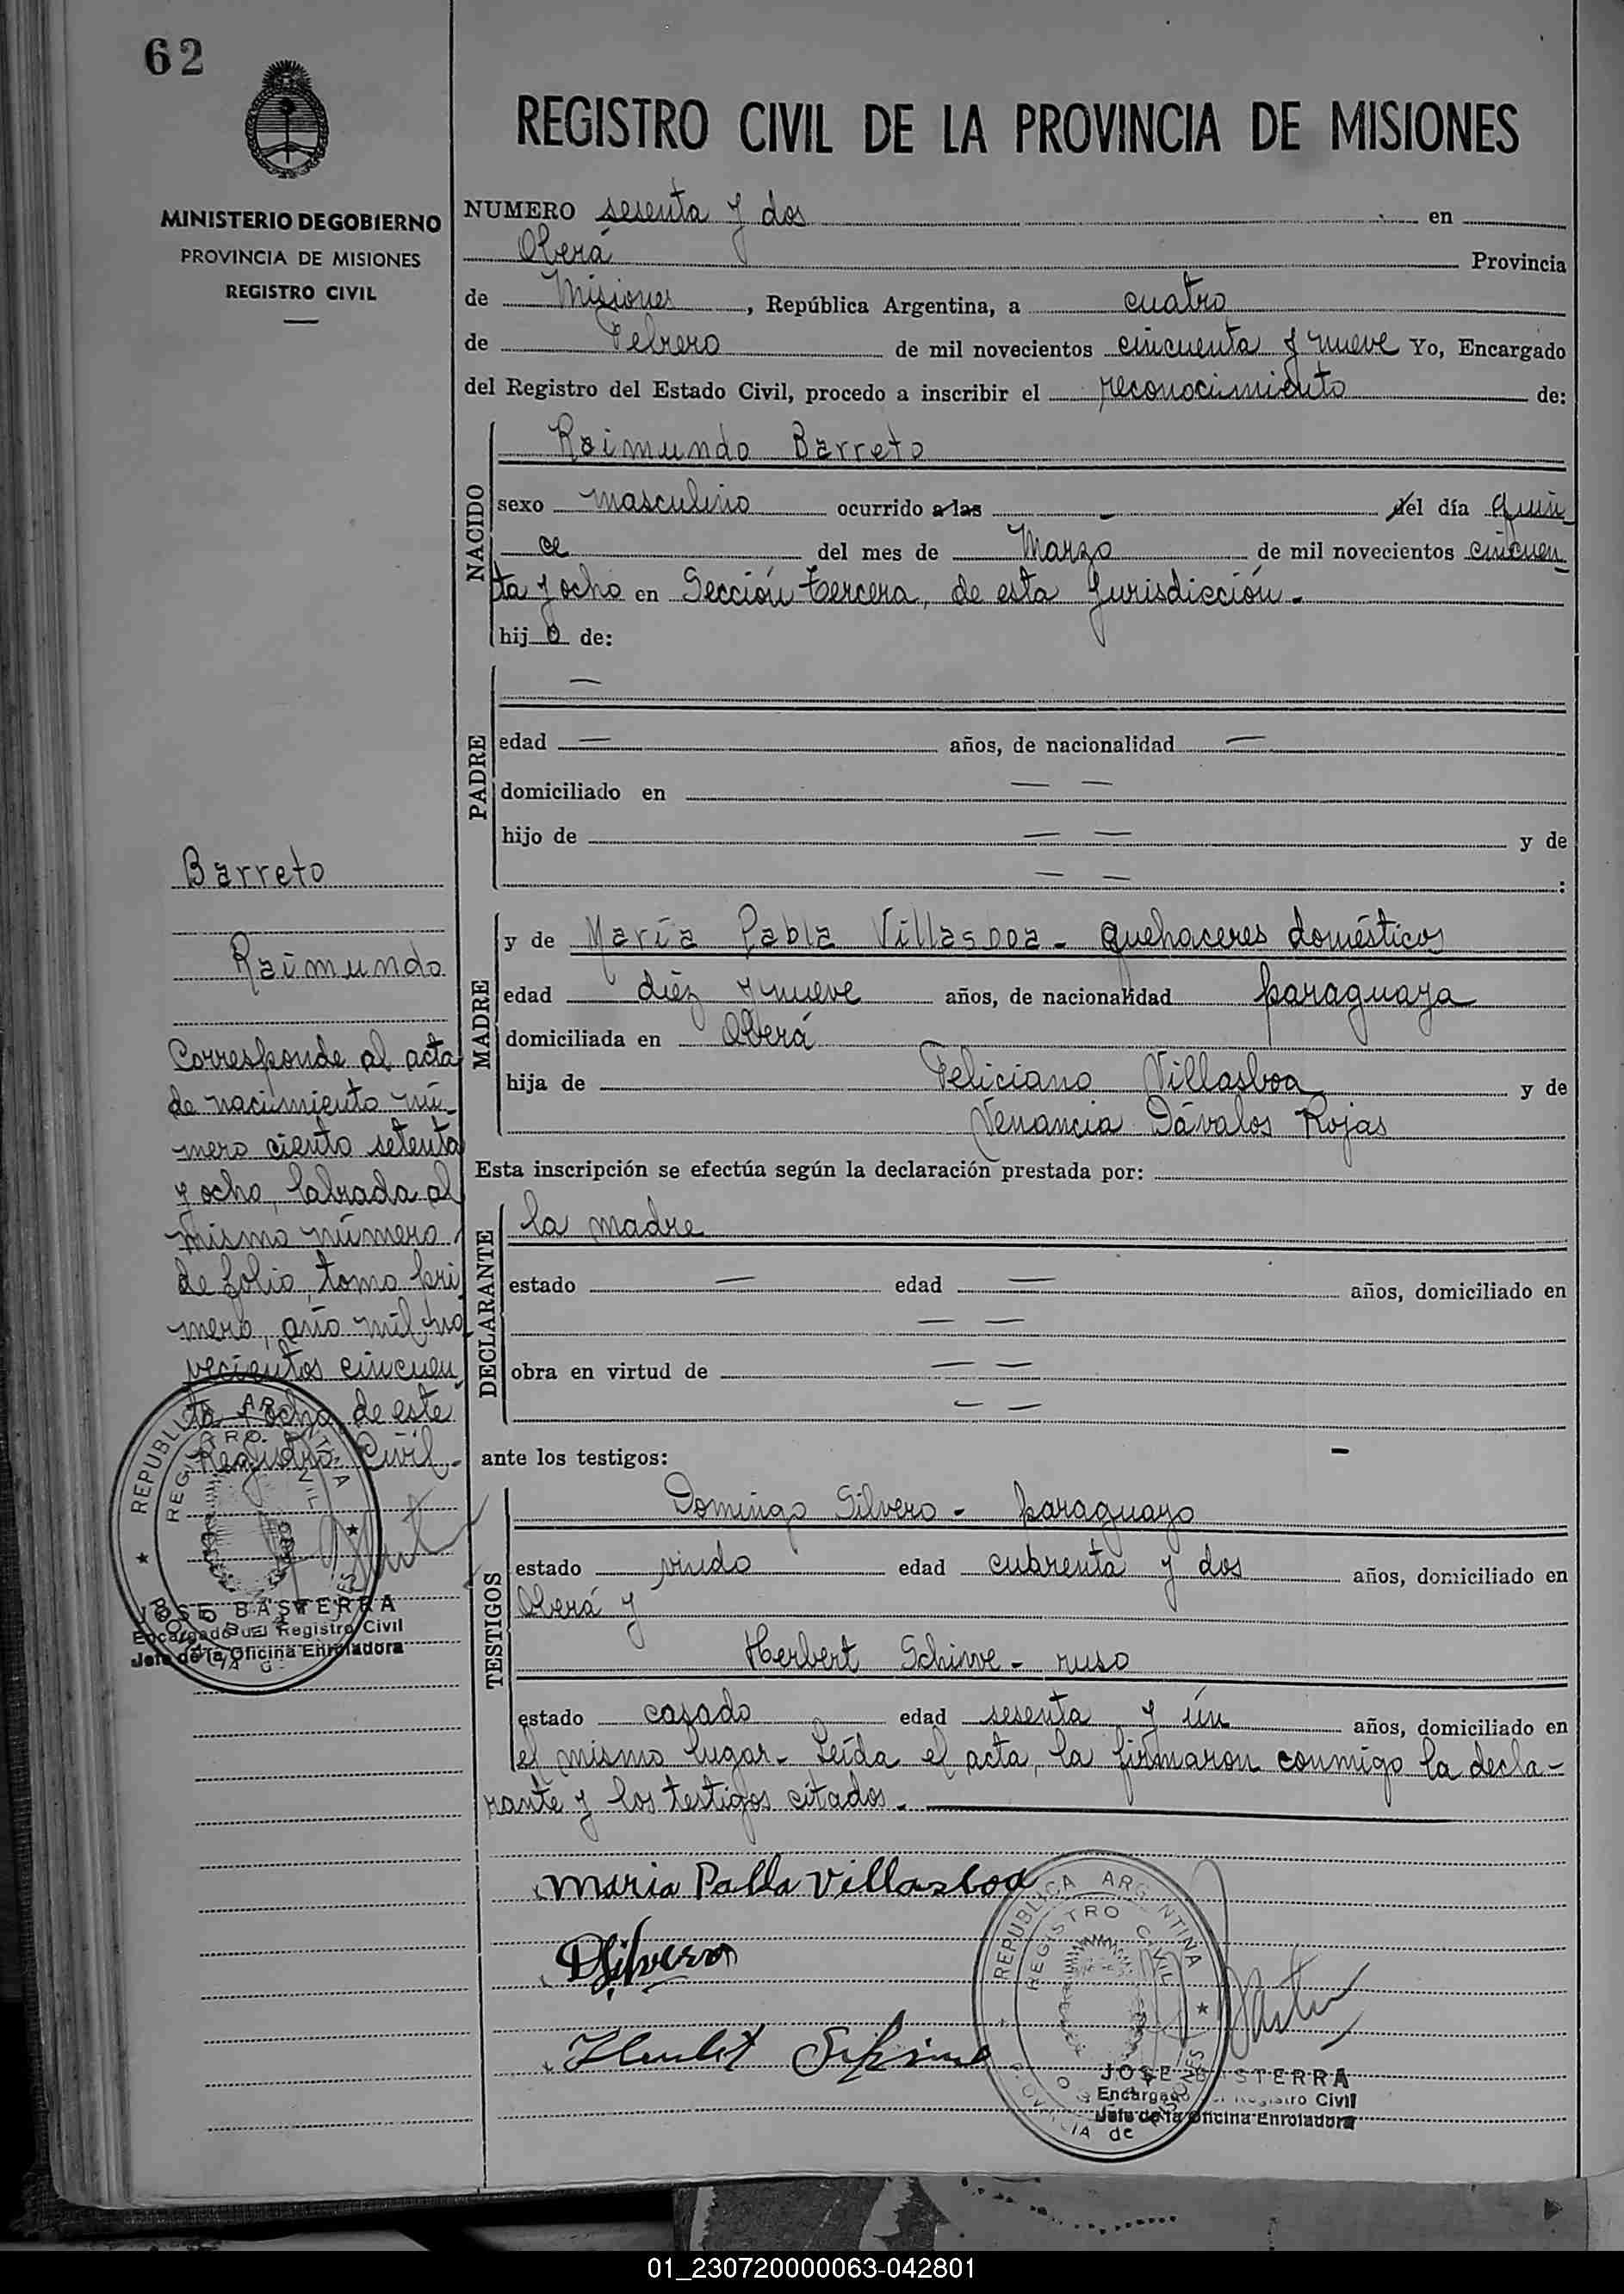 62
MINISTERIO DE GOBIERNO
PROVINCIA DE MISIONES
REGISTRO CIVIL
REGISTRO CIVIL DE LA PROVINCIA DE MISIONES
NUMERO sesenta y dos en
Oberá Provincia
de Misiones, República Argentina, a cuatro
de Febrero de mil novecientos cincuenta y nueve Yo, Encargado
del Registro del Estado Civil, procedo a inscribir el reconocimiento de:
NACIDO
Raimundo Barreto
sexo masculino ocurrido a las - del día quin
ce del mes de Marzo de mil novecientos cincuen
ta y ocho en Sección tercera, de esta Jurisdicción.-
hijo de:
PADRE
—
edad — años, de nacionalidad —
domiciliado en — —
hijo de — — y de
— — :
MADRE
y de María Pabla Villasboa - quehaceres domésticos
edad diéz y nueve años, de nacionalidad paraguaya
domiciliada en Oberá
hija de Feliciano Villasboa y de
Venancia Dávalos Rojas
Esta inscripción se efectúa según la declaración prestada por:
DECLARANTE
la madre
estado — edad — años, domiciliado en
— —
obra en virtud de — —
— —
ante los testigos: -
TESTIGOS
Domingo Silvero - paraguayo
estado viudo edad cuarenta y dos años, domiciliado en
Oberá y
Herbert - ruso
estado casado edad sesenta y ún años, domiciliado en
el mismo lugar.- Leída el acta, la firmaron conmigo la decla-
rante y los testigos citados.-
Maria Pabla Villasboa
DSilvero
REPUBLICA ARGENTINA
REGISTRO CIVIL
JOSE BASTERRA
Encargado del Registro Civil
Jefe de la Oficina Enroladora
Barreto
Raimundo
Corresponde al acta
de nacimiento nú-
mero ciento setenta
y ocho, labrada al
mismo número
de folio, tomo pri
mero, año mil no
vecientos cincuen
ta y ocho, de este
Registro Civil.-
REPUBLICA ARGENTINA
REGISTRO CIVIL
JOSE BASTERRA
Encargado del Registro Civil
Jefe de la Oficina Enroladora
01_230720000063-042801